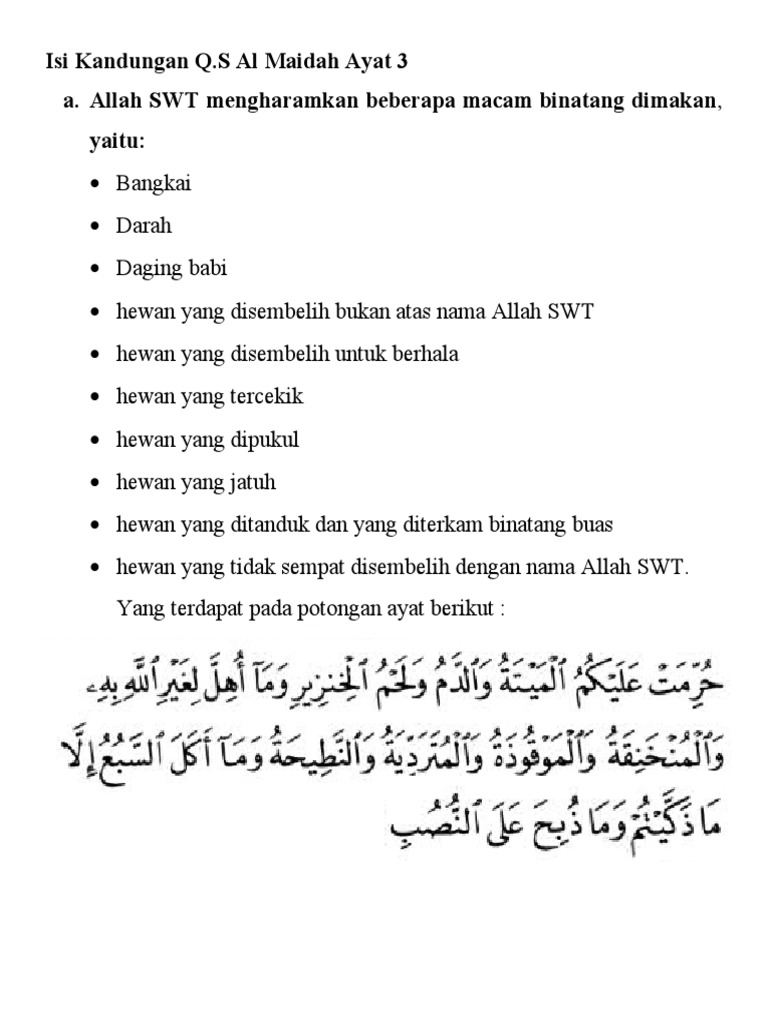 Isi Kandungan Q.S Al Maidah Ayat 3
a. Allah SWT mengharamkan beberapa macam binatang dimakan,
yaitu:
• Bangkai
• Darah
• Daging babi
• hewan yang disembelih bukan atas nama Allah SWT
• hewan yang disembelih untuk berhala
• hewan yang tercekik
• hewan yang dipukul
• hewan yang jatuh
• hewan yang ditanduk dan yang diterkam binatang buas
• hewan yang tidak sempat disembelih dengan nama Allah SWT.
Yang terdapat pada potongan ayat berikut :
حُرِّمَتْ عَلَيْكُمُ ٱلْمَيْتَةُ وَٱلدَّمُ وَلَحْمُ ٱلْخِنزِيرِ وَمَآ أُهِلَّ لِغَيْرِ ٱللَّهِ بِهِۦ
وَٱلْمُنْخَنِقَةُ وَٱلْمَوْقُوذَةُ وَٱلْمُتَرَدِّيَةُ وَٱلنَّطِيحَةُ وَمَآ أَكَلَ ٱلسَّبُعُ إِلَّا
مَا ذَكَّيْتُمْ وَمَا ذُبِحَ عَلَى ٱلنُّصُبِ